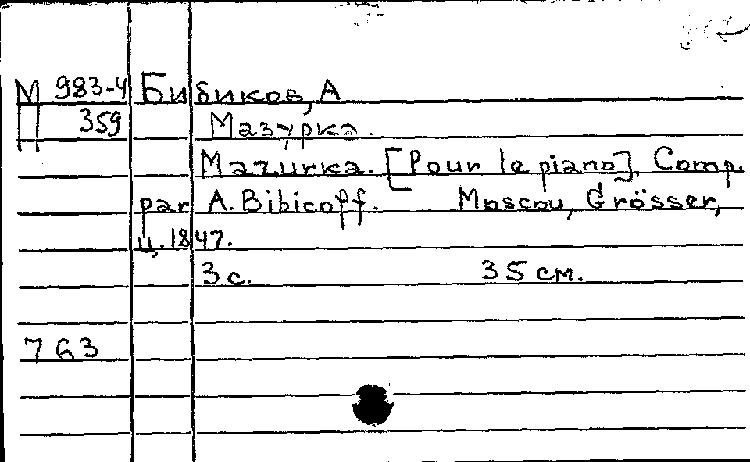 М 983-4 Бибиков, А
П 359 Мазурка.
Mazurka. [Pour le piano]. Comp.
par A. Bibicoff. Moscou, Grösser,
ц. 1847.
3 с. 35 см.
763